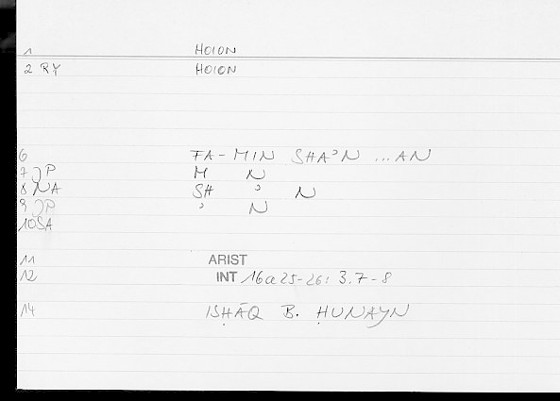 1 HOION
2 RY HOION
6 FA-MIN SHAʾN ...AN
7 JP M N
8 NA SH ʾ N
9 JP ʾ N
10 SA
11 ARIST
12 INT 16a25-26: 3.7-8
14 ISḤĀQ B. ḤUNAYN